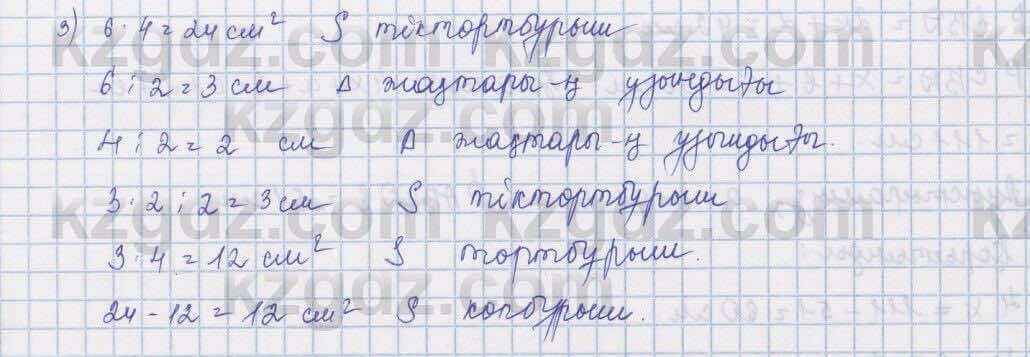 3) 6 · 4 = 24 см² S тіктортбурыш
6 : 2 = 3 см Δ жақтары-ң узындығы
4 : 2 = 2 см Δ жақтары-ң узындығы.
3 · 2 : 2 = 3 см S тіктортбурыш
3 · 4 = 12 см² S тортбурыш.
24 - 12 = 12 см² S копбурыш.